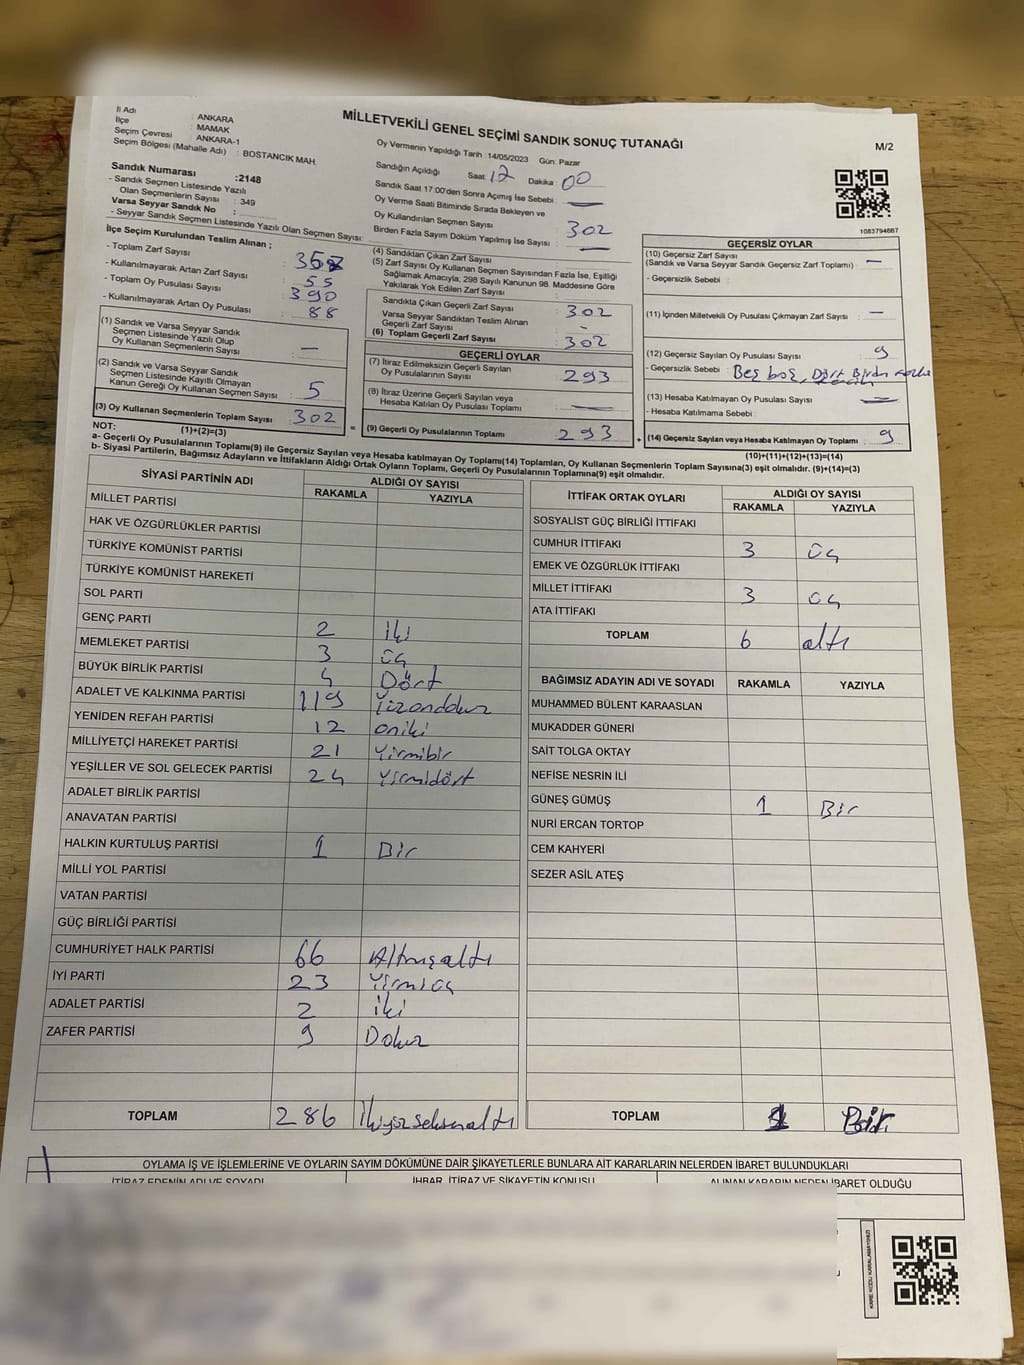 MİLLETVEKİLİ GENEL SEÇİMİ SANDIK SONUÇ TUTANAĞI
M/2
İl Adı : ANKARA
İlçe : MAMAK
Seçim Çevresi : ANKARA-1
Seçim Bölgesi (Mahalle Adı) : BOSTANCIK MAH.
Sandık Numarası :2148
- Sandık Seçmen Listesinde Yazılı
Olan Seçmenlerin Sayısı : 349
Varsa Seyyar Sandık No :
- Seyyar Sandık Seçmen Listesinde Yazılı Olan Seçmen Sayısı :
Oy Vermenin Yapıldığı Tarih :14/05/2023 Gün: Pazar
Sandığın Açıldığı Saat: 12 Dakika : 00
Sandık Saat 17:00'den Sonra Açımış İse Sebebi : —
Oy Verme Saati Bitiminde Sırada Bekleyen ve
Oy Kullandırılan Seçmen Sayısı 302
Birden Fazla Sayım Döküm Yapılmış İse Sayısı : —
1083794667
İlçe Seçim Kurulundan Teslim Alınan ;
- Toplam Zarf Sayısı :
- Kullanılmayarak Artan Zarf Sayısı : 55
- Toplam Oy Pusulası Sayısı : 390
- Kullanılmayarak Artan Oy Pusulası : 88
(1) Sandık ve Varsa Seyyar Sandık
Seçmen Listesinde Yazılı Olup
Oy Kullanan Seçmenlerin Sayısı : —
(2) Sandık ve Varsa Seyyar Sandık
Seçmen Listesinde Kayıtlı Olmayan
Kanun Gereği Oy Kullanan Seçmen Sayısı : 5
(3) Oy Kullanan Seçmenlerin Toplam Sayısı : 302
(1)+(2)=(3)
(4) Sandıktan Çıkan Zarf Sayısı :
(5) Zarf Sayısı Oy Kullanan Seçmen Sayısından Fazla İse, Eşitliği
Sağlamak Amacıyla; 298 Sayılı Kanunun 98. Maddesine Göre
Yakılarak Yok Edilen Zarf Sayısı :
Sandıkta Çıkan Geçerli Zarf Sayısı : 302
Varsa Seyyar Sandıktan Teslim Alınan
Geçerli Zarf Sayısı : -
(6) Toplam Geçerli Zarf Sayısı : 302
GEÇERLİ OYLAR
(7) İtiraz Edilmeksizin Geçerli Sayılan
Oy Pusulalarının Sayısı : 293
(8) İtiraz Üzerine Geçerli Sayılan veya
Hesaba Katılan Oy Pusulası Toplamı : —
= (9) Geçerli Oy Pusulalarının Toplamı : 293
GEÇERSİZ OYLAR
(10) Geçersiz Zarf Sayısı
(Sandık ve Varsa Seyyar Sandık Geçersiz Zarf Toplamı) : —
- Geçersizlik Sebebi :
(11) İçinden Milletvekili Oy Pusulası Çıkmayan Zarf Sayısı : —
(12) Geçersiz Sayılan Oy Pusulası Sayısı : 9
- Geçersizlik Sebebi : Beş boş, Dört Birden
(13) Hesaba Katılmayan Oy Pusulası Sayısı : —
- Hesaba Katılmama Sebebi :
+ (14) Geçersiz Sayılan veya Hesaba Katılmayan Oy Toplamı : 9
(10)+(11)+(12)+(13)=(14)
NOT:
a- Geçerli Oy Pusulalarının Toplamı(9) ile Geçersiz Sayılan veya Hesaba Katılmayan Oy Toplamı(14) Toplamları, Oy Kullanan Seçmenlerin Toplam Sayısına(3) eşit olmalıdır. (9)+(14)=(3)
b- Siyasi Partilerin, Bağımsız Adayların ve İttifakların Aldığı Ortak Oyların Toplamı, Geçerli Oy Pusulalarının Toplamına(9) eşit olmalıdır.
SİYASİ PARTİNİN ADI ALDIĞI OY SAYISI
RAKAMLA YAZIYLA
MİLLET PARTİSİ
HAK VE ÖZGÜRLÜKLER PARTİSİ
TÜRKİYE KOMÜNİST PARTİSİ
TÜRKİYE KOMÜNİST HAREKETİ
SOL PARTİ
GENÇ PARTİ 2 iki
MEMLEKET PARTİSİ 3 üç
BÜYÜK BİRLİK PARTİSİ 4 Dört
ADALET VE KALKINMA PARTİSİ 119 Yüzondokuz
YENİDEN REFAH PARTİSİ 12 oniki
MİLLİYETÇİ HAREKET PARTİSİ 21 Yirmibir
YEŞİLLER VE SOL GELECEK PARTİSİ 24 Yirmidört
ADALET BİRLİK PARTİSİ
ANAVATAN PARTİSİ
HALKIN KURTULUŞ PARTİSİ 1 Bir
MİLLİ YOL PARTİSİ
VATAN PARTİSİ
GÜÇ BİRLİĞİ PARTİSİ
CUMHURİYET HALK PARTİSİ 66 Altmışaltı
İYİ PARTİ 23 Yirmiüç
ADALET PARTİSİ 2 iki
ZAFER PARTİSİ 9 Dokuz
TOPLAM 286 İkiyüzseksenaltı
İTTİFAK ORTAK OYLARI ALDIĞI OY SAYISI
RAKAMLA YAZIYLA
SOSYALİST GÜÇ BİRLİĞİ İTTİFAKI
CUMHUR İTTİFAKI 3 üç
EMEK VE ÖZGÜRLÜK İTTİFAKI
MİLLET İTTİFAKI 3 üç
ATA İTTİFAKI
TOPLAM 6 altı
BAĞIMSIZ ADAYIN ADI VE SOYADI RAKAMLA YAZIYLA
MUHAMMED BÜLENT KARAASLAN
MUKADDER GÜNERİ
SAİT TOLGA OKTAY
NEFİSE NESRİN İLİ
GÜNEŞ GÜMÜŞ 1 Bir
NURİ ERCAN TORTOP
CEM KAHYERİ
SEZER ASİL ATEŞ
TOPLAM 1 Bir
OYLAMA İŞ VE İŞLEMLERİNE VE OYLARIN SAYIM DÖKÜMÜNE DAİR ŞİKAYETLERLE BUNLARA AİT KARARLARIN NELERDEN İBARET BULUNDUKLARI
İTİRAZ EDENİN ADI VE SOYADI İHBAR, İTİRAZ VE ŞİKAYETİN KONUSU ALINAN KARARIN NEDEN İBARET OLDUĞU